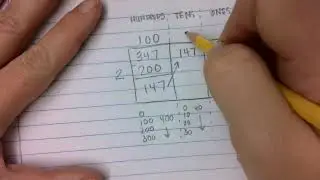 HUNDREDS, TENS, ONES
100
347 147
2 200
147
0 0 40
100 400 10
200 20
300 30